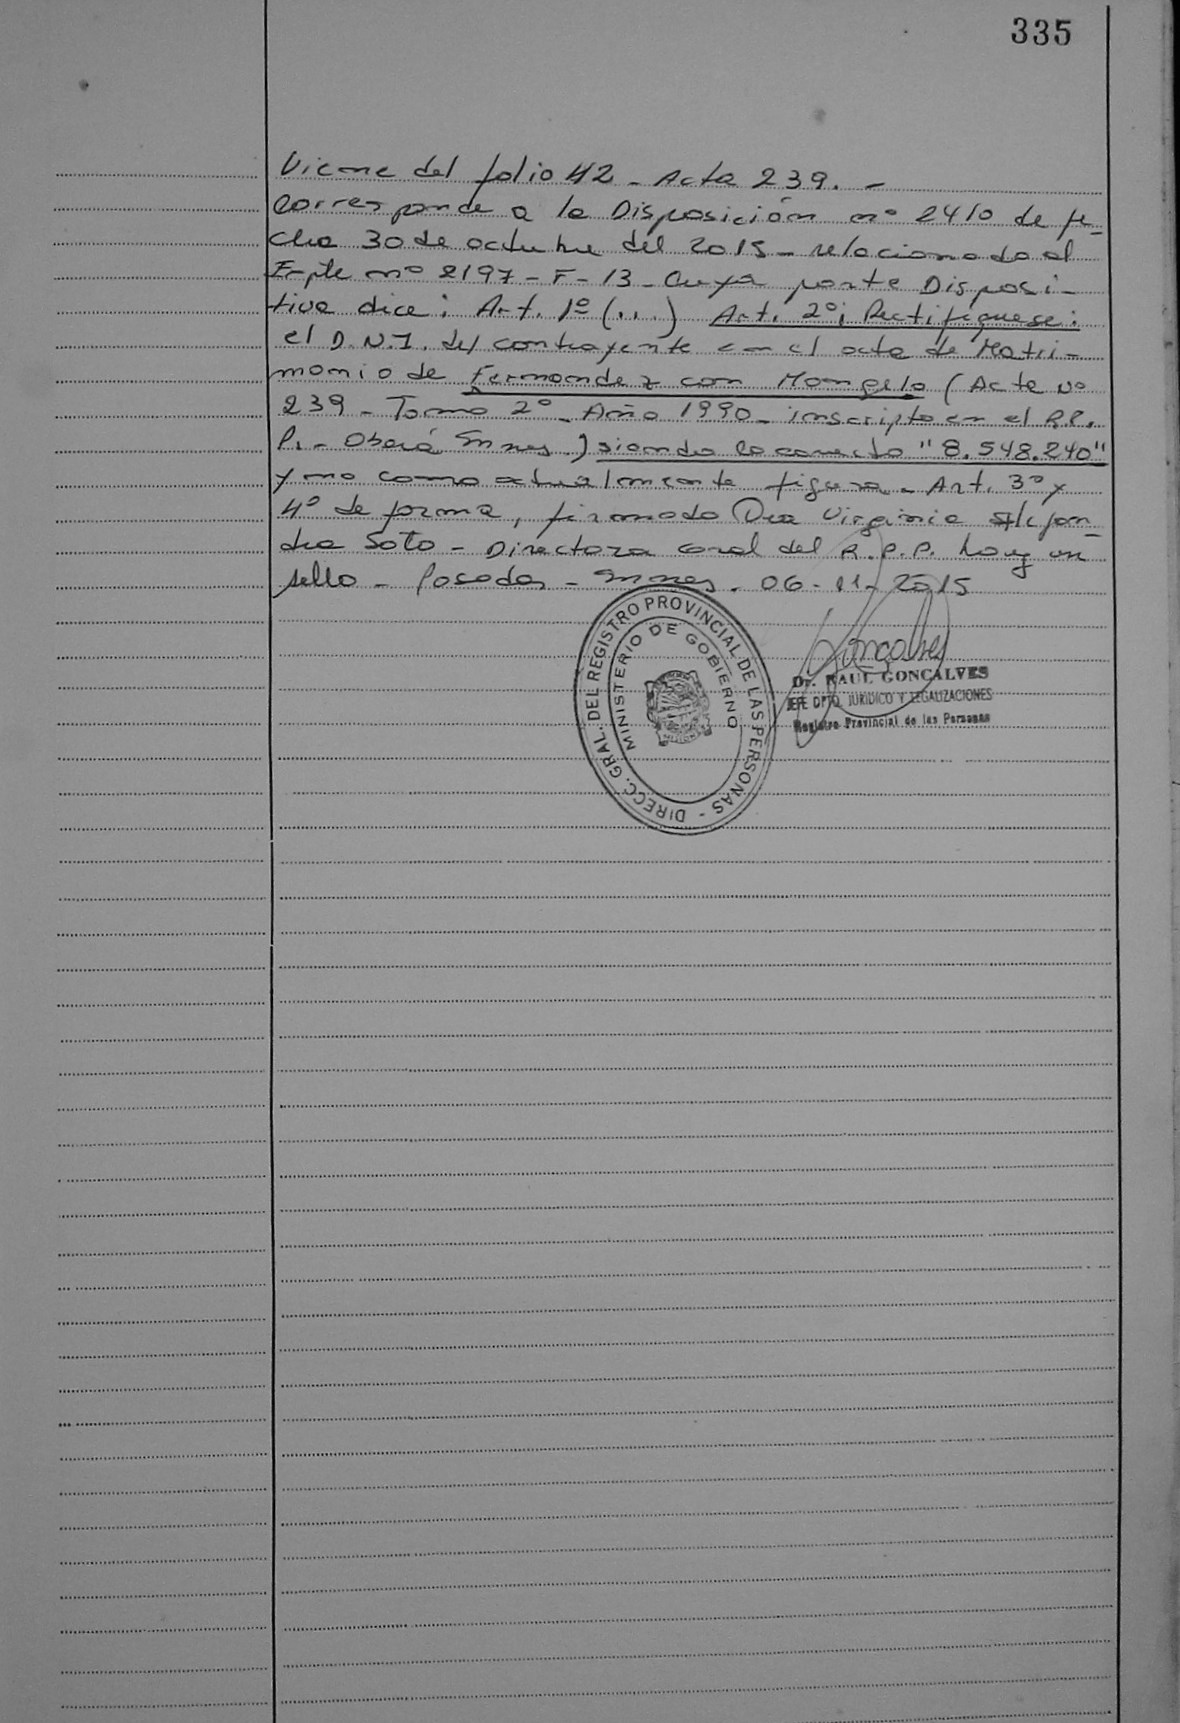 335
Viene del folio 42 - Acta 239. -
Corresponde a la Disposición nº 2410 de fe-
cha 30 de octubre del 2015 - relacionado al
Expte nº 2197 - F - 13 - Cuya parte Disposi-
tiva dice: Art. 1º (...) Art. 2º: Rectifíquese:
el D.N.I. del contrayente en el acta de Matri-
monio de Fernandez con Mongelo (Acta Nº
239 - Tomo 2º - Año 1990 - inscripto en el R.P.
P. - Oberá Mnes.) siendo lo correcto "8.548.240"
y no como actualmente figura - Art. 3º y
4º de forma, firmado Dra Virginia Alejan-
dra Soto - Directora Gral del R.P.P. hay un
sello - Posadas - Mnes. 06-11-2015
DIRECC. GRAL. DEL REGISTRO PROVINCIAL DE LAS PERSONAS -
MINISTERIO DE GOBIERNO
Goncalves
Dr. RAUL GONCALVES
JEFE DPTO. JURIDICO Y LEGALIZACIONES
Registro Provincial de las Personas